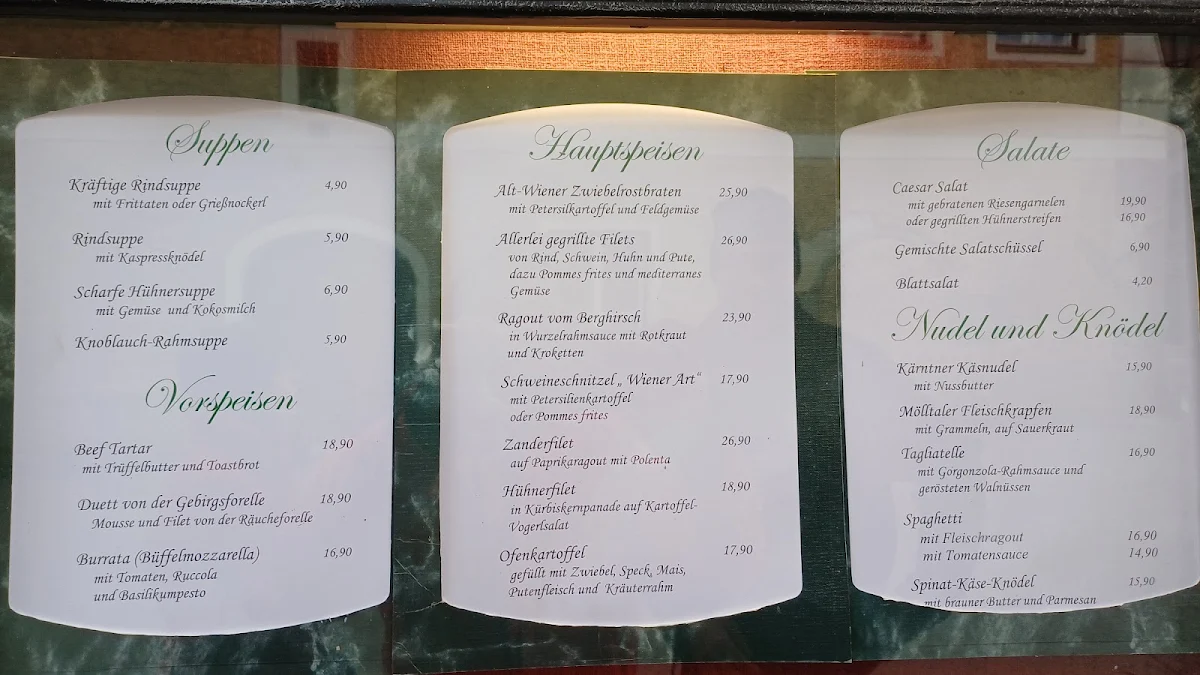 Suppen
Kräftige Rindsuppe 4,90
mit Frittaten oder Grießnockerl
Rindsuppe 5,90
mit Kaspressknödel
Scharfe Hühnersuppe 6,90
mit Gemüse und Kokosmilch
Knoblauch-Rahmsuppe 5,90
Vorspeisen
Beef Tartar 18,90
mit Trüffelbutter und Toastbrot
Duett von der Gebirgsforelle 18,90
Mousse und Filet von der Räucheforelle
Burrata (Büffelmozzarella) 16,90
mit Tomaten, Ruccola
und Basilikumpesto
Hauptspeisen
Alt-Wiener Zwiebelrostbraten 25,90
mit Petersilkartoffel und Feldgemüse
Allerlei gegrillte Filets 26,90
von Rind, Schwein, Huhn und Pute,
dazu Pommes frites und mediterranes
Gemüse
Ragout vom Berghirsch 23,90
in Wurzelrahmsauce mit Rotkraut
und Kroketten
Schweineschnitzel „ Wiener Art“ 17,90
mit Petersilienkartoffel
oder Pommes frites
Zanderfilet 26,90
auf Paprikaragout mit Polenta
Hühnerfilet 18,90
in Kürbiskernpanade auf Kartoffel-
Vogerlsalat
Ofenkartoffel 17,90
gefüllt mit Zwiebel, Speck, Mais,
Putenfleisch und Kräuterrahm
Salate
Caesar Salat
mit gebratenen Riesengarnelen 19,90
oder gegrillten Hühnerstreifen 16,90
Gemischte Salatschüssel 6,90
Blattsalat 4,20
Nudel und Knödel
Kärntner Käsnudel 15,90
mit Nussbutter
Mölltaler Fleischkrapfen 18,90
mit Grammeln, auf Sauerkraut
Tagliatelle 16,90
mit Gorgonzola-Rahmsauce und
gerösteten Walnüssen
Spaghetti
mit Fleischragout 16,90
mit Tomatensauce 14,90
Spinat-Käse-Knödel 15,90
mit brauner Butter und Parmesan